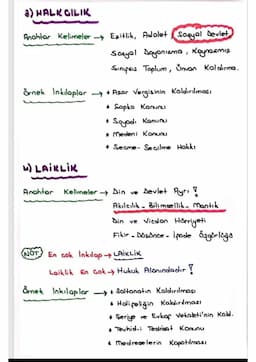 3) HALKÇILIK
Anahtar Kelimeler → Eşitlik, Adalet, Sosyal Devlet
Sosyal Dayanışma, Kaynaşmış
Sınıfsız Toplum, Ünvan Kaldırma.
Örnek İnkılaplar → • Aşar Vergisinin Kaldırılması
• Şapka Kanunu
• Soyadı Kanunu
• Medeni Kanunu
• Seçme-Seçilme Hakkı
4) LAİKLİK
Anahtar Kelimeler → Din ve Devlet Ayrı !
Akılcılık - Bilimsellik - Mantık
Din ve Vicdan Hürriyeti
Fikir - Düşünce - İfade Özgürlüğü
NOT: En çok İnkılap → LAİKLİK
Laiklik En Çok → Hukuk Alanındadır !
Örnek İnkılaplar → • Saltanatın Kaldırılması
• Halifeliğin Kaldırılması
• Şeriye ve Evkaf Vekaleti'nin Kald.
• Tevhid-i Tedrisat Kanunu
• Medreselerin Kapatılması